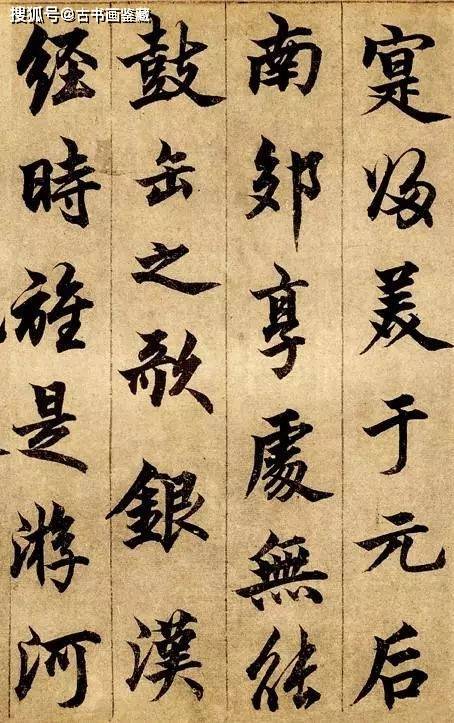 搜狐号@古书画鉴藏
寔歸美于元后
南郊享處無能
鼓缶之歌銀漢
經時是游河